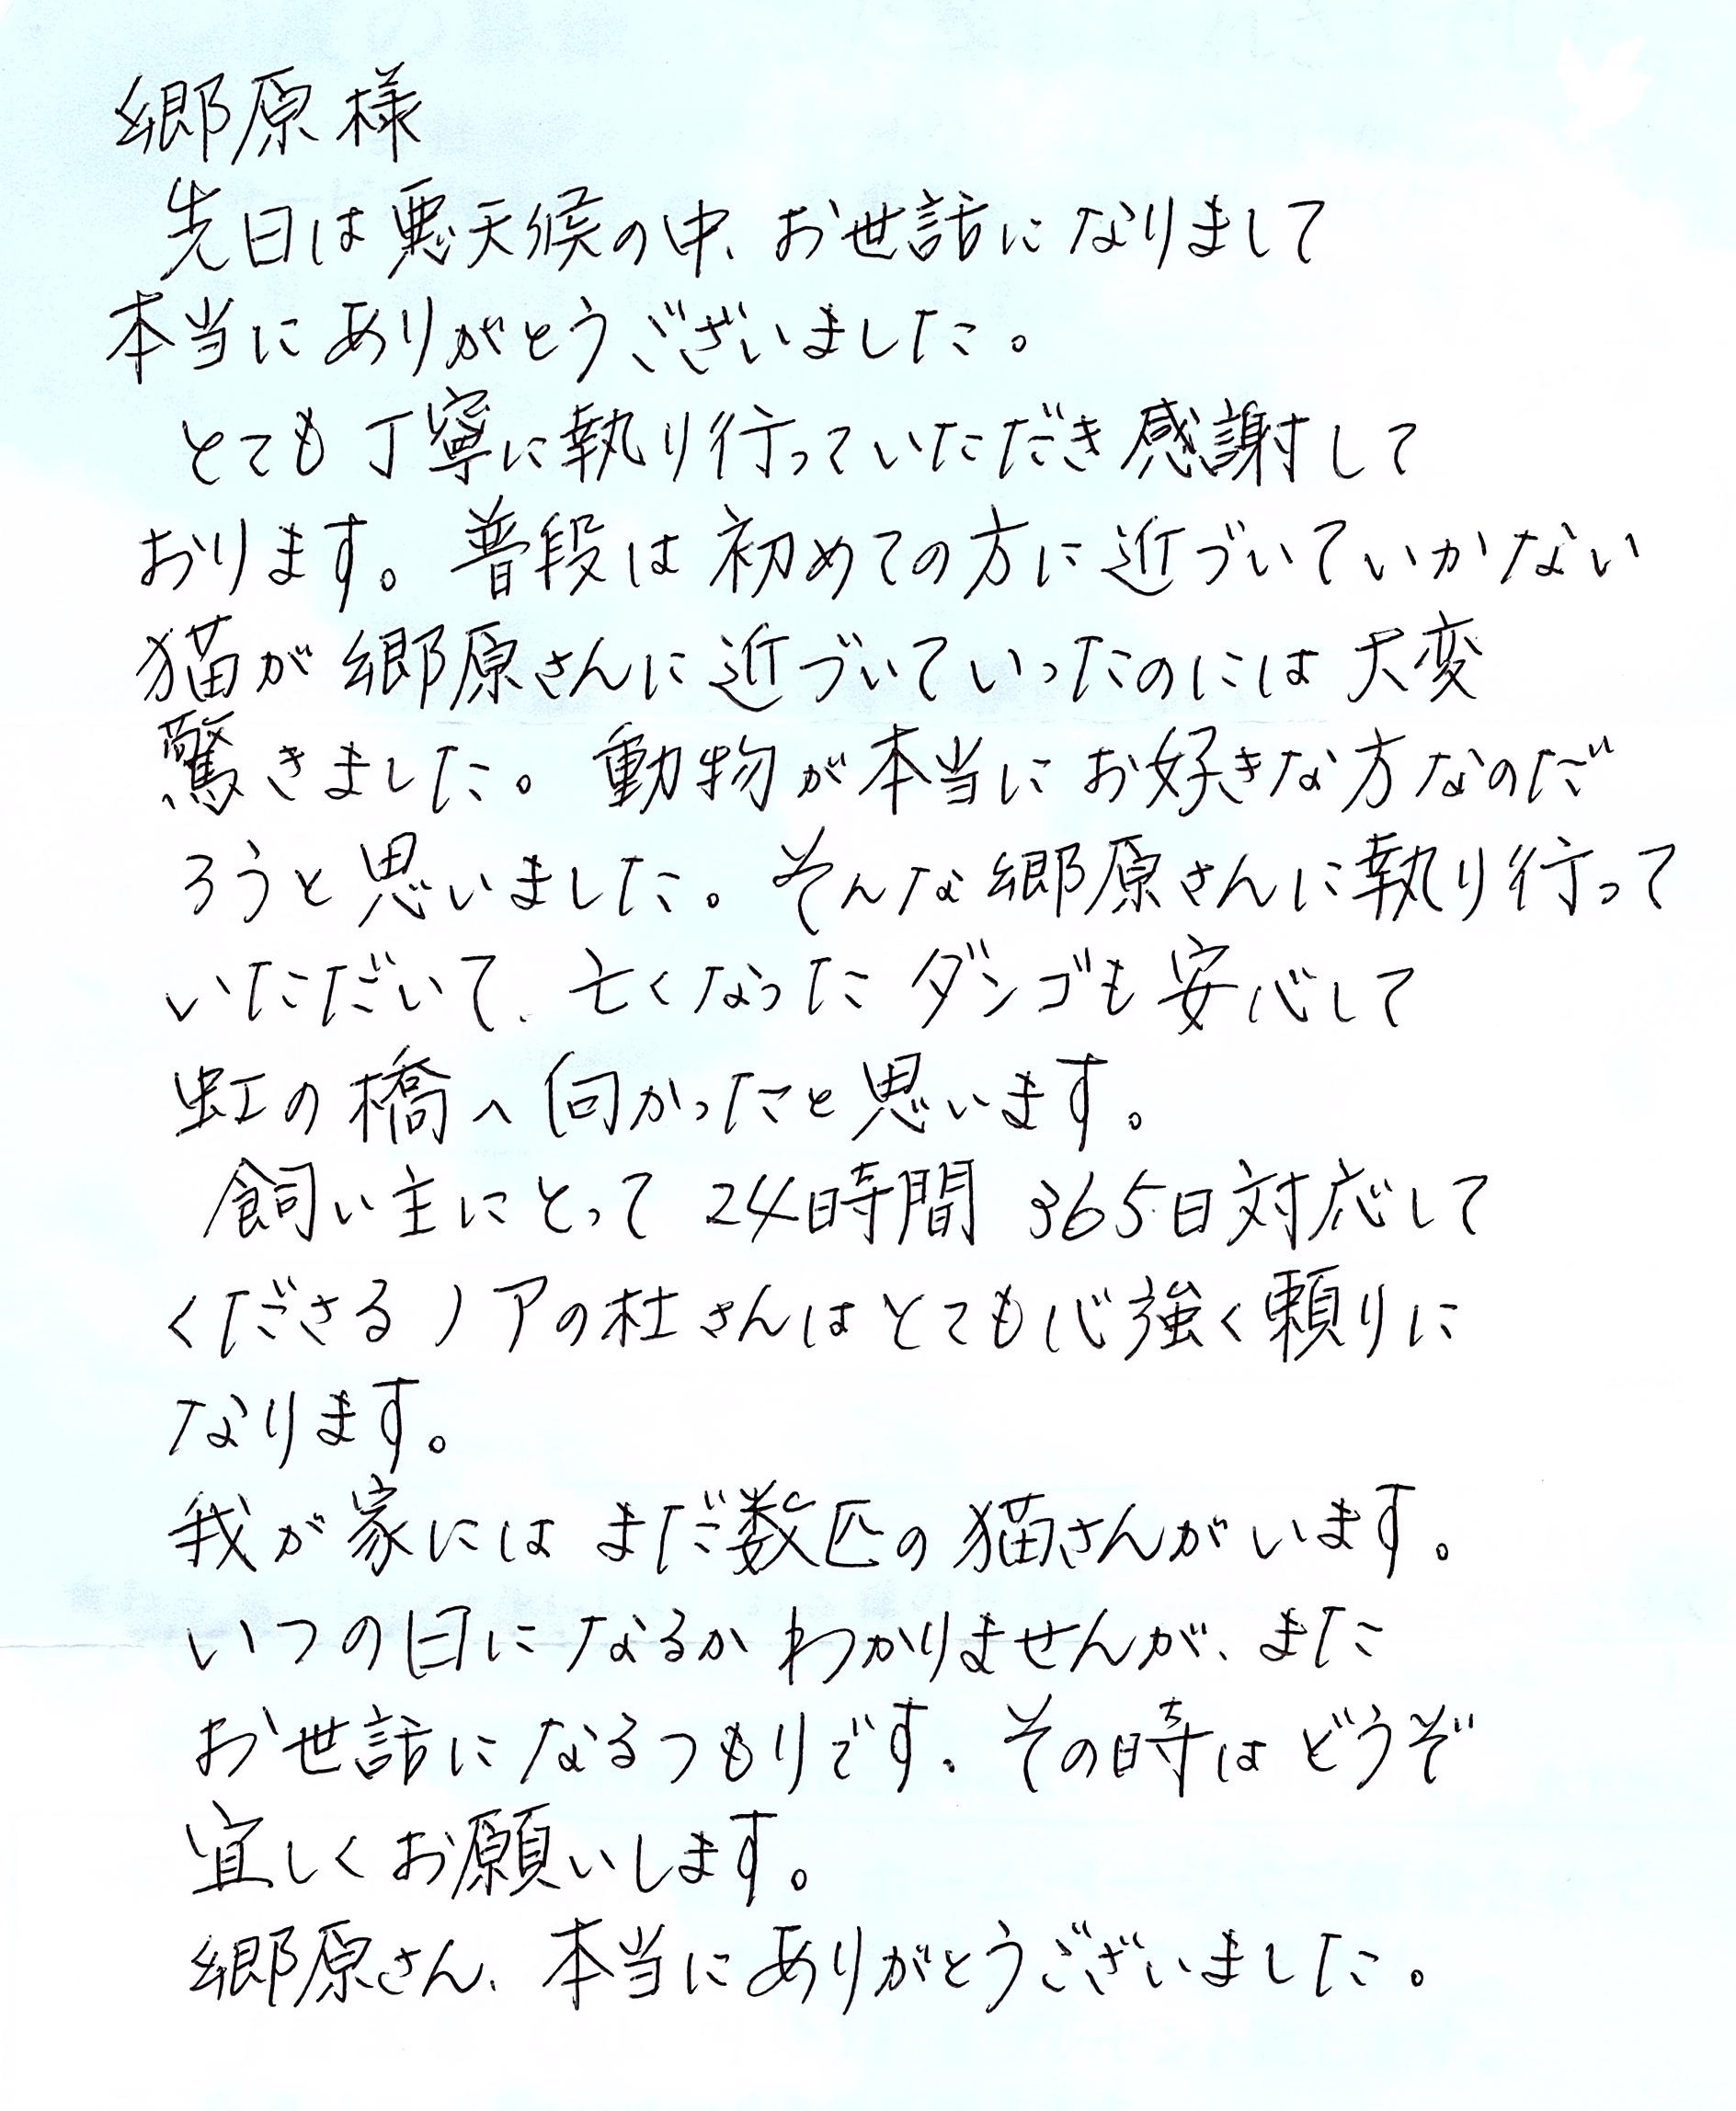 郷原様
先日は悪天候の中、お世話になりまして
本当にありがとうございました。
とても丁寧に執り行っていただき感謝して
おります。普段は初めての方に近づいていかない
猫が郷原さんに近づいていったのには大変
驚きました。動物が本当にお好きな方なのだ
ろうと思いました。そんな郷原さんに執り行って
いただいて、亡くなったダンゴも安心して
虹の橋へ向かったと思います。
飼い主にとって24時間 365日対応して
くださるノアの杜さんはとても心強く頼りに
なります。
我が家にはまだ数匹の猫さんがいます。
いつの日になるかわかりませんが、また
お世話になるつもりです。その時はどうぞ
宜しくお願いします。
郷原さん、本当にありがとうございました。